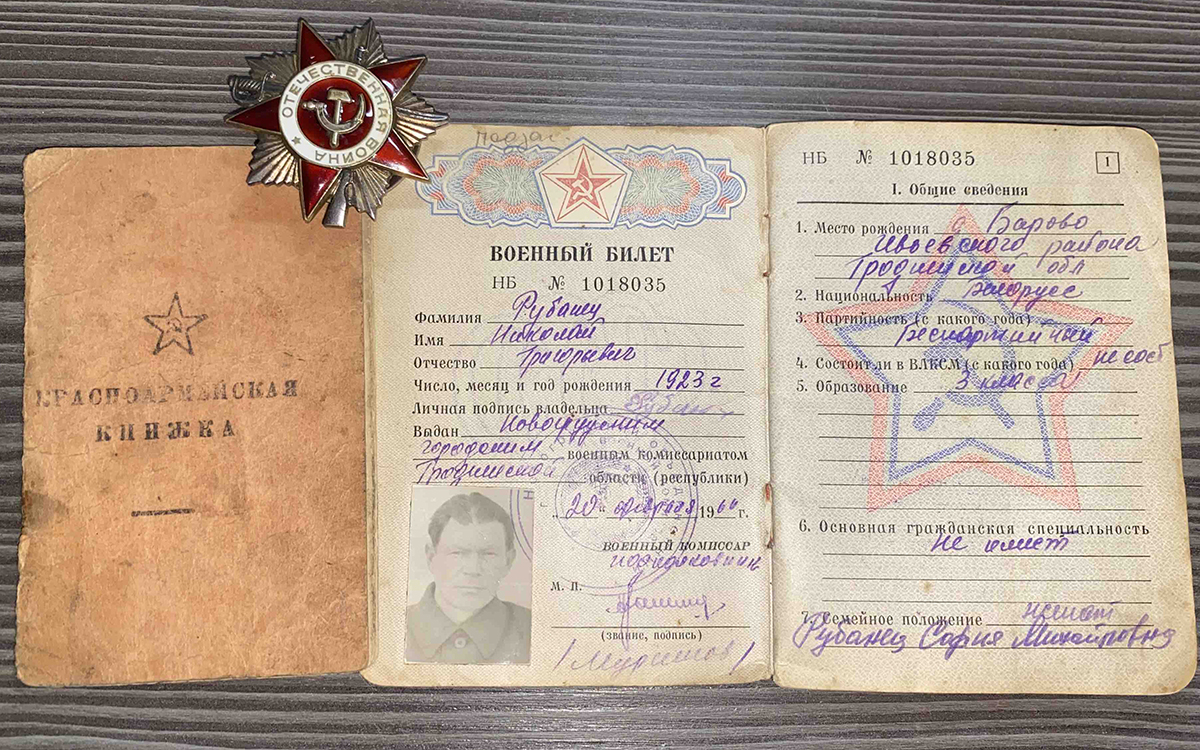 ОТЕЧЕСТВЕННАЯ ВОЙНА
КРАСНОАРМЕЙСКАЯ
КНИЖКА
ВОЕННЫЙ БИЛЕТ
НБ № 1018035
Фамилия Рубанец
Имя Николай
Отчество Григорьевич
Число, месяц и год рождения 1923 г
Личная подпись владельца Рубанец
Выдан Новогрудским
городским военным комиссариатом
Гродненской области (республики)
"20" февраля 1966 г.
ВОЕННЫЙ КОМИССАР
подполковник
М. П.
(звание, подпись)
НБ № 1018035
1
I. Общие сведения
1. Место рождения д Барово
Ивьевского района
Гродненской обл
2. Национальность белорусс
3. Партийность (с какого года)
Беспартийный
4. Состоит ли в ВЛКСМ (с какого года) не сост
5. Образование 3 класса
6. Основная гражданская специальность
Не имеет
7. Семейное положение женат
Рубанец София Михайловна